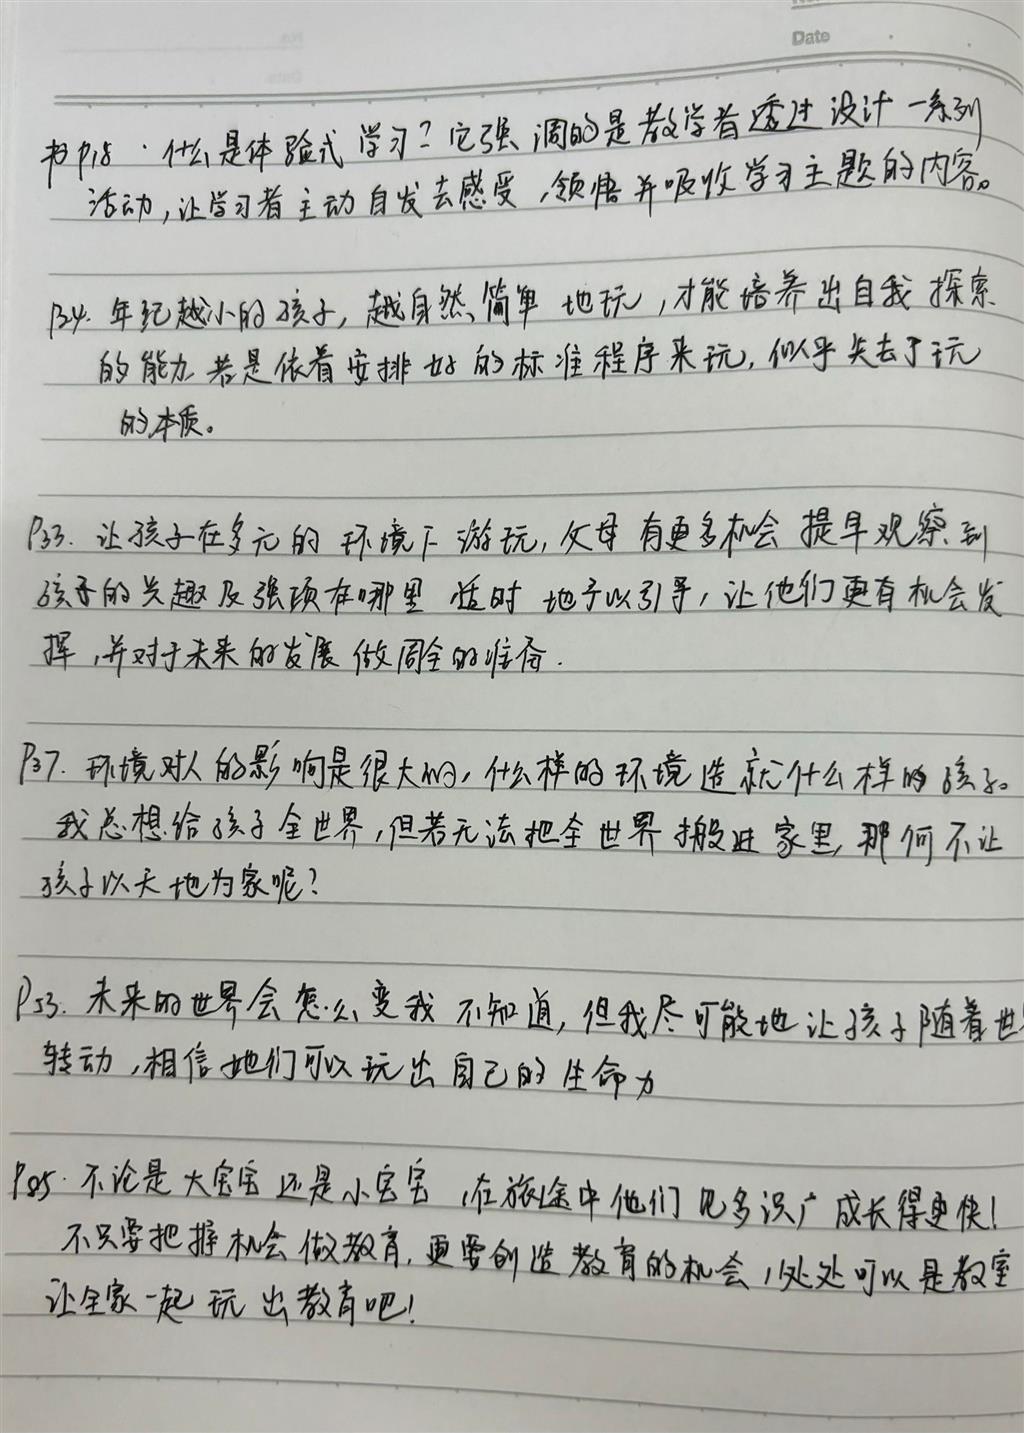 Date
书P18. 什么是体验式学习？它强调的是教学者透过设计一系列
活动，让学习者主动自发去感受，领悟并吸收学习主题的内容。
P24. 年纪越小的孩子，越自然、简单地玩，才能培养出自我探索
的能力 若是依着安排好的标准程序来玩，似乎失去了玩
的本质。
P33. 让孩子在多元的环境下游玩，父母有更多机会提早观察到
孩子的兴趣及强项在哪里 适时地予以引导，让他们更有机会发
挥，并对于未来的发展做周全的准备.
P37. 环境对人的影响是很大的，什么样的环境造就什么样的孩子。
我总想给孩子全世界，但若无法把全世界搬进家里，那何不让
孩子以天地为家呢？
P53. 未来的世界会怎么变我不知道，但我尽可能地让孩子随着世界
转动，相信他们可以玩出自己的生命力
P85. 不论是大宝宝还是小宝宝，在旅途中他们见多识广成长得更快！
不只要把握机会做教育，更要创造教育的机会，处处可以是教室
让全家一起玩出教育吧！